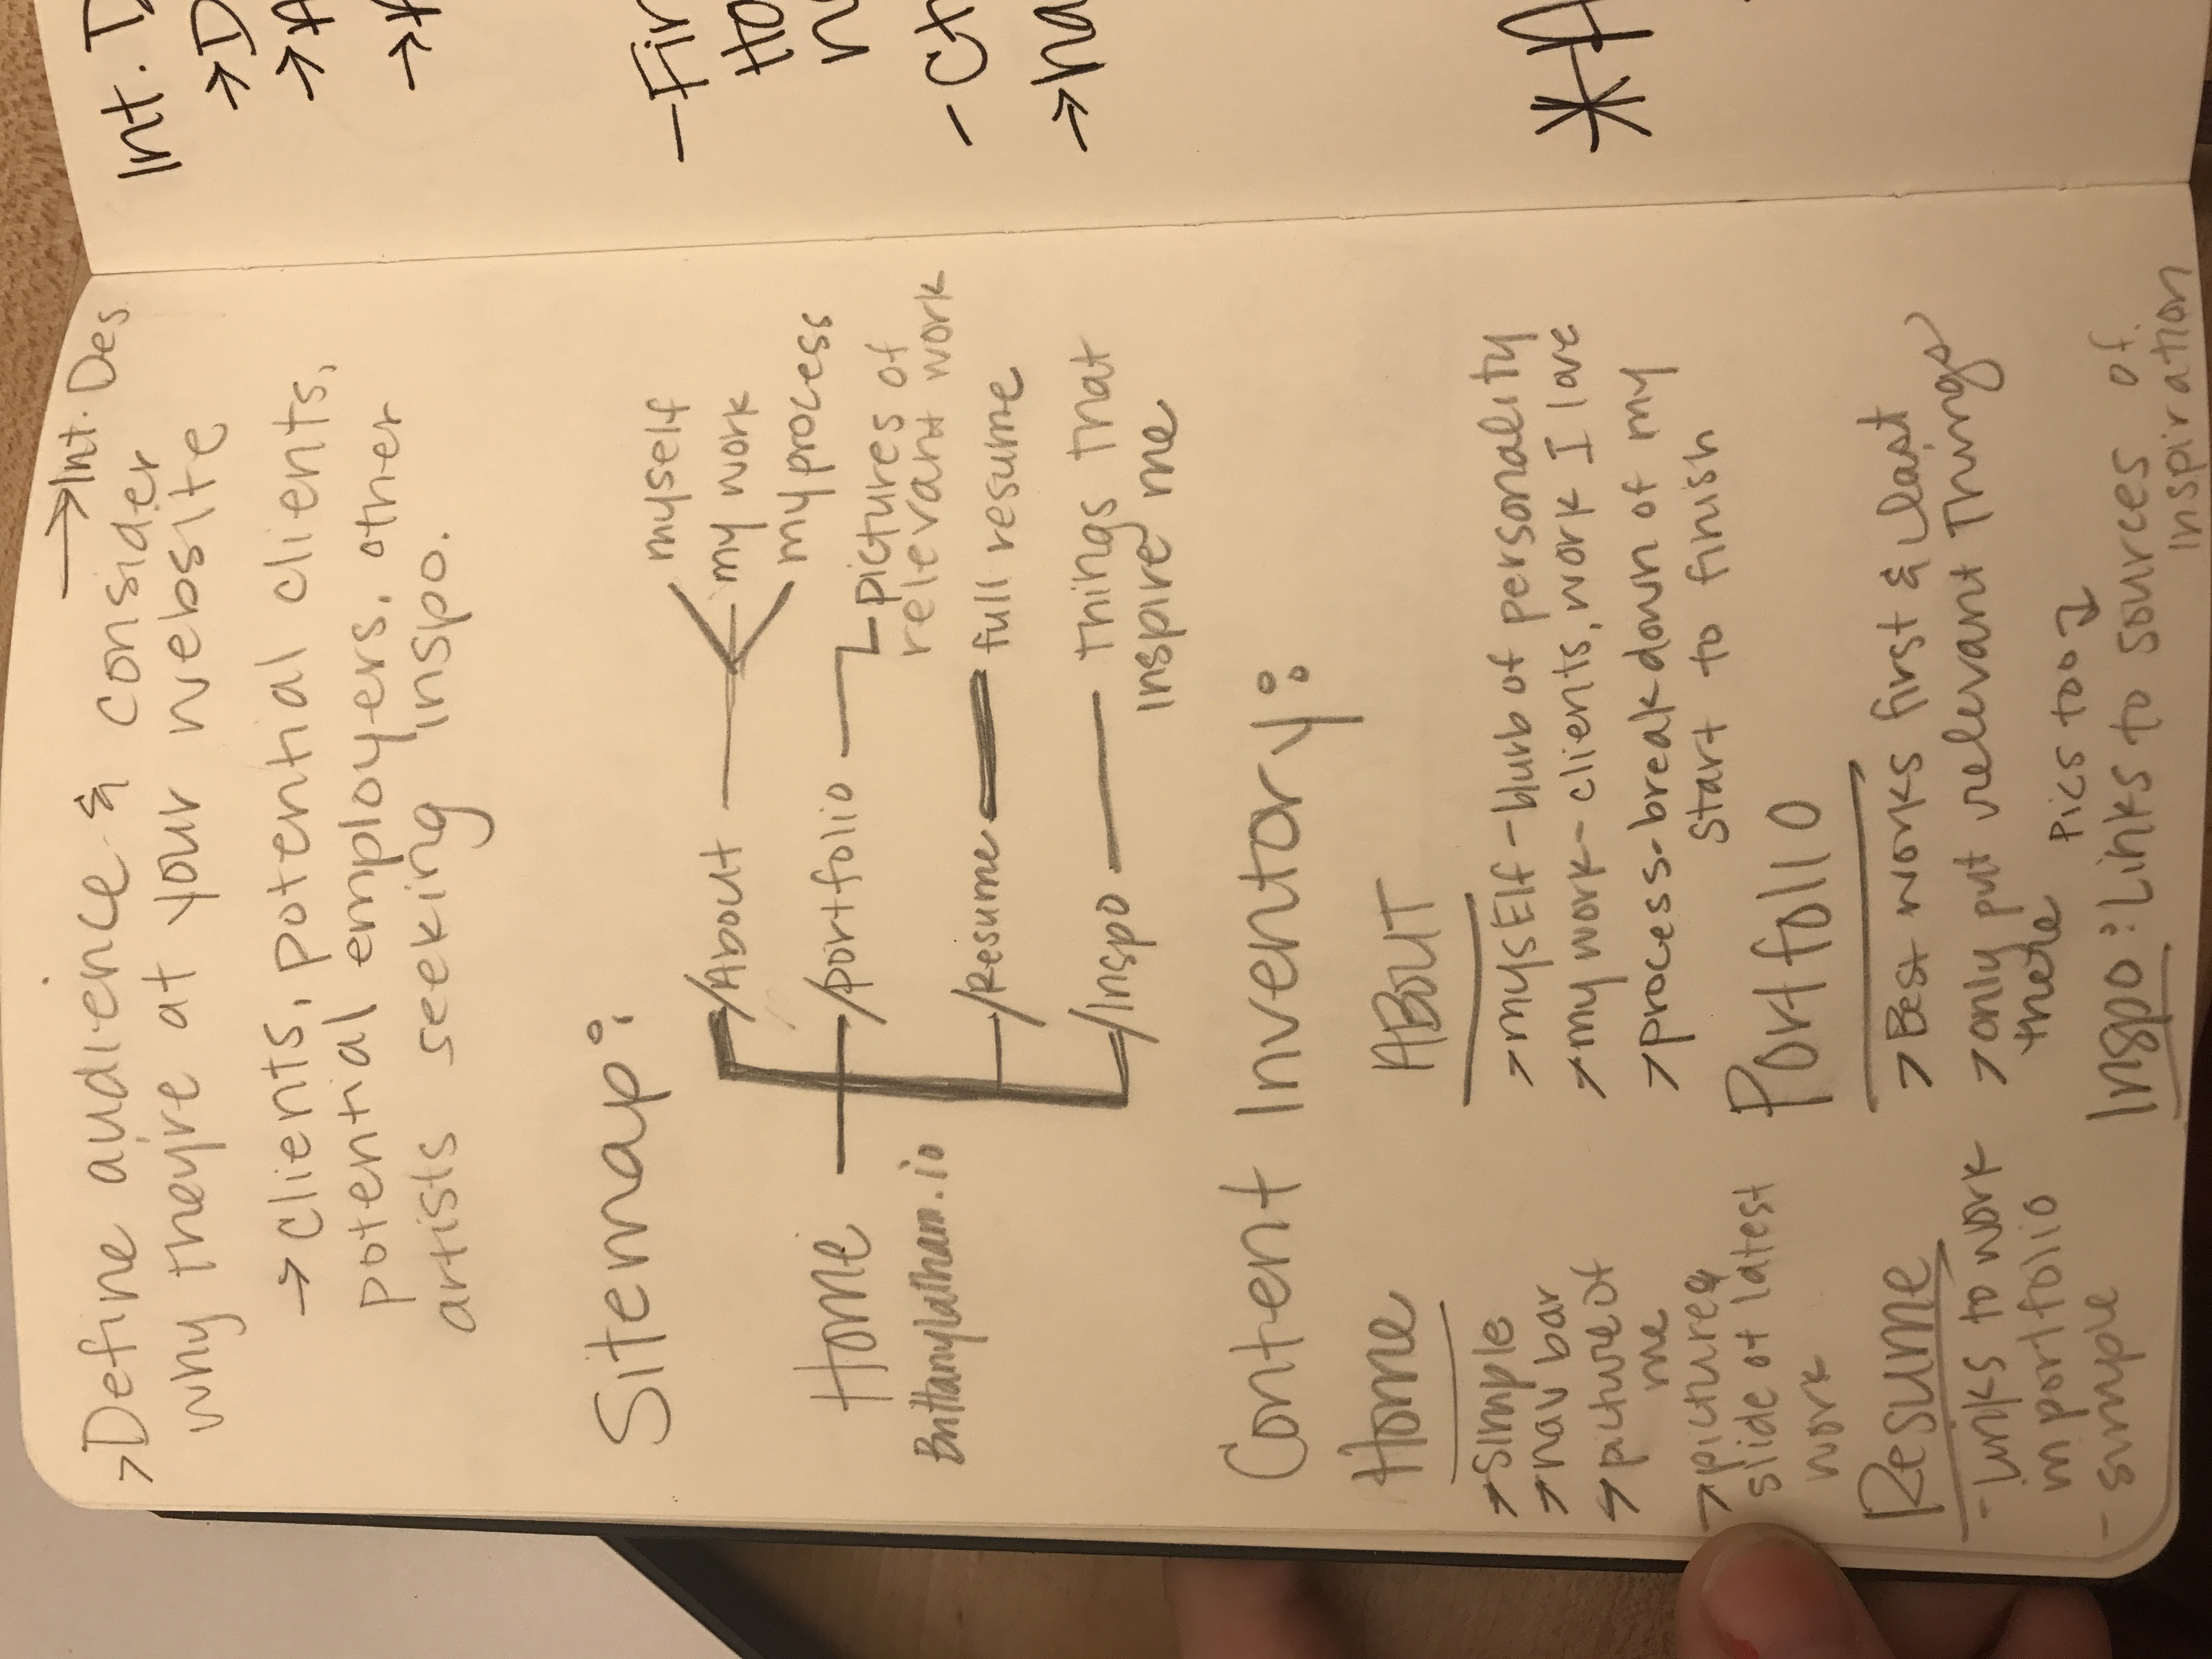 →Int. Des
>Define audience & consider
why they're at your website
→ clients, potential clients,
potential employers, other
artists seeking inspo.
Sitemap:
Home
Brittanylatham.io
/About
myself
my work
my process
/portfolio
pictures of
relevant work
/Resume
full resume
/Inspo
things that
inspire me
Content Inventory:
Home
→simple
→nav bar
→picture of
me
→picture
slide of latest
work
ABOUT
>mysElf - blurb of personality
>my work - clients, work I love
>process - breakdown of my
start to finish
Portfolio
>Best works first & last
>only put relevant things
there
Resume
- Links to work
in portfolio
- simple
Pics too
Inspo: Links to sources of
inspiration
Int. D
→D
→A
→
-Fir
Ho
n
- Ch
→ha
*A